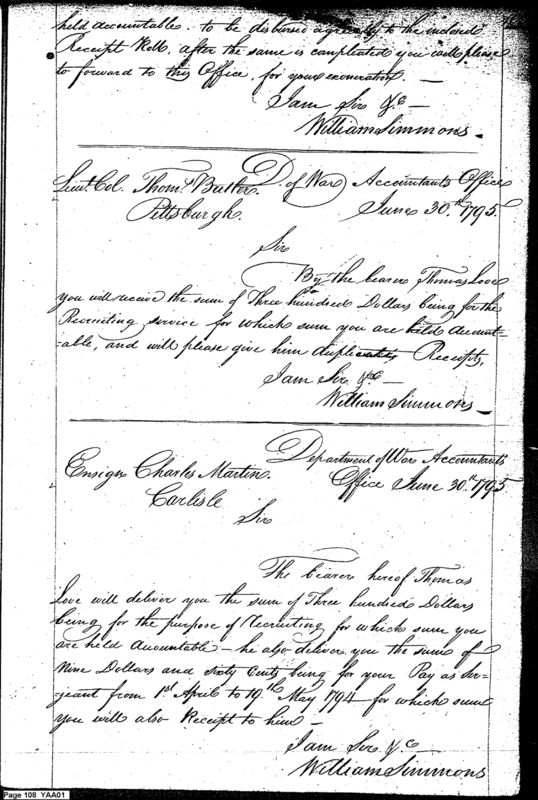 held accountable. to be disbursed agreeably to the enclosed
Receipt Roll, after the same is compleated you will please
to forward to this Office, for your exoneration. —
I am Sir &c —
William Simmons.
Lieut. Col. Thoms. Butler
Pittsburgh.
D. of War Accountants Office
June 30th. 1795.
Sir
By the bearer Thomas Love
you will receive the sum of Three hundred Dollars being for the
Recruiting service for which sum you are held Account-
-able, and will please give him duplicate Receipts.
I am Sir &c —
William Simmons —
Ensign Charles Martin.
Carlisle
Department of War Accountants
Office June 30th. 1795
Sir
The bearer hereof Thomas
Love will deliver you the sum of Three hundred Dollars
being for the purpose of Recruiting for which sum you
are held Accountable — he also deliver you the sum of
Nine Dollars and sixty Cents being for your Pay as Ser-
jeant from 1st. April to 19th. May 1794 for which sum
you will also Receipt to him —
I am Sir &c —
William Simmons
Page 108 YAA01